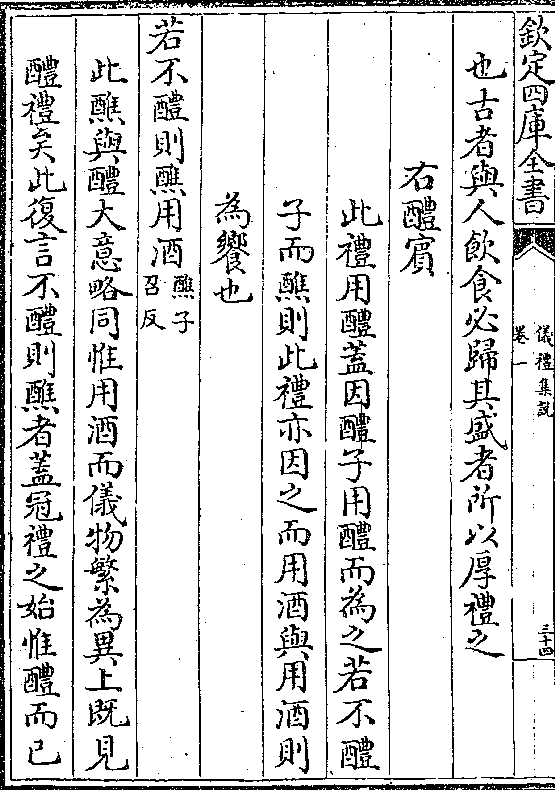 欽定四庫全書
儀禮集說
卷一
三十四
也古者與人飲食必歸其盛者所以厚禮之
右醴賓
此禮用醴蓋因醴子用醴而為之若不醴
子而醮則此禮亦因之而用酒與用酒則
為饗也
若不醴則醮用酒醮子
召反
此醮與醴大意略同惟用酒而儀物繁為異上既見
醴禮矣此復言不醴則醮者蓋冠禮之始惟醴而已